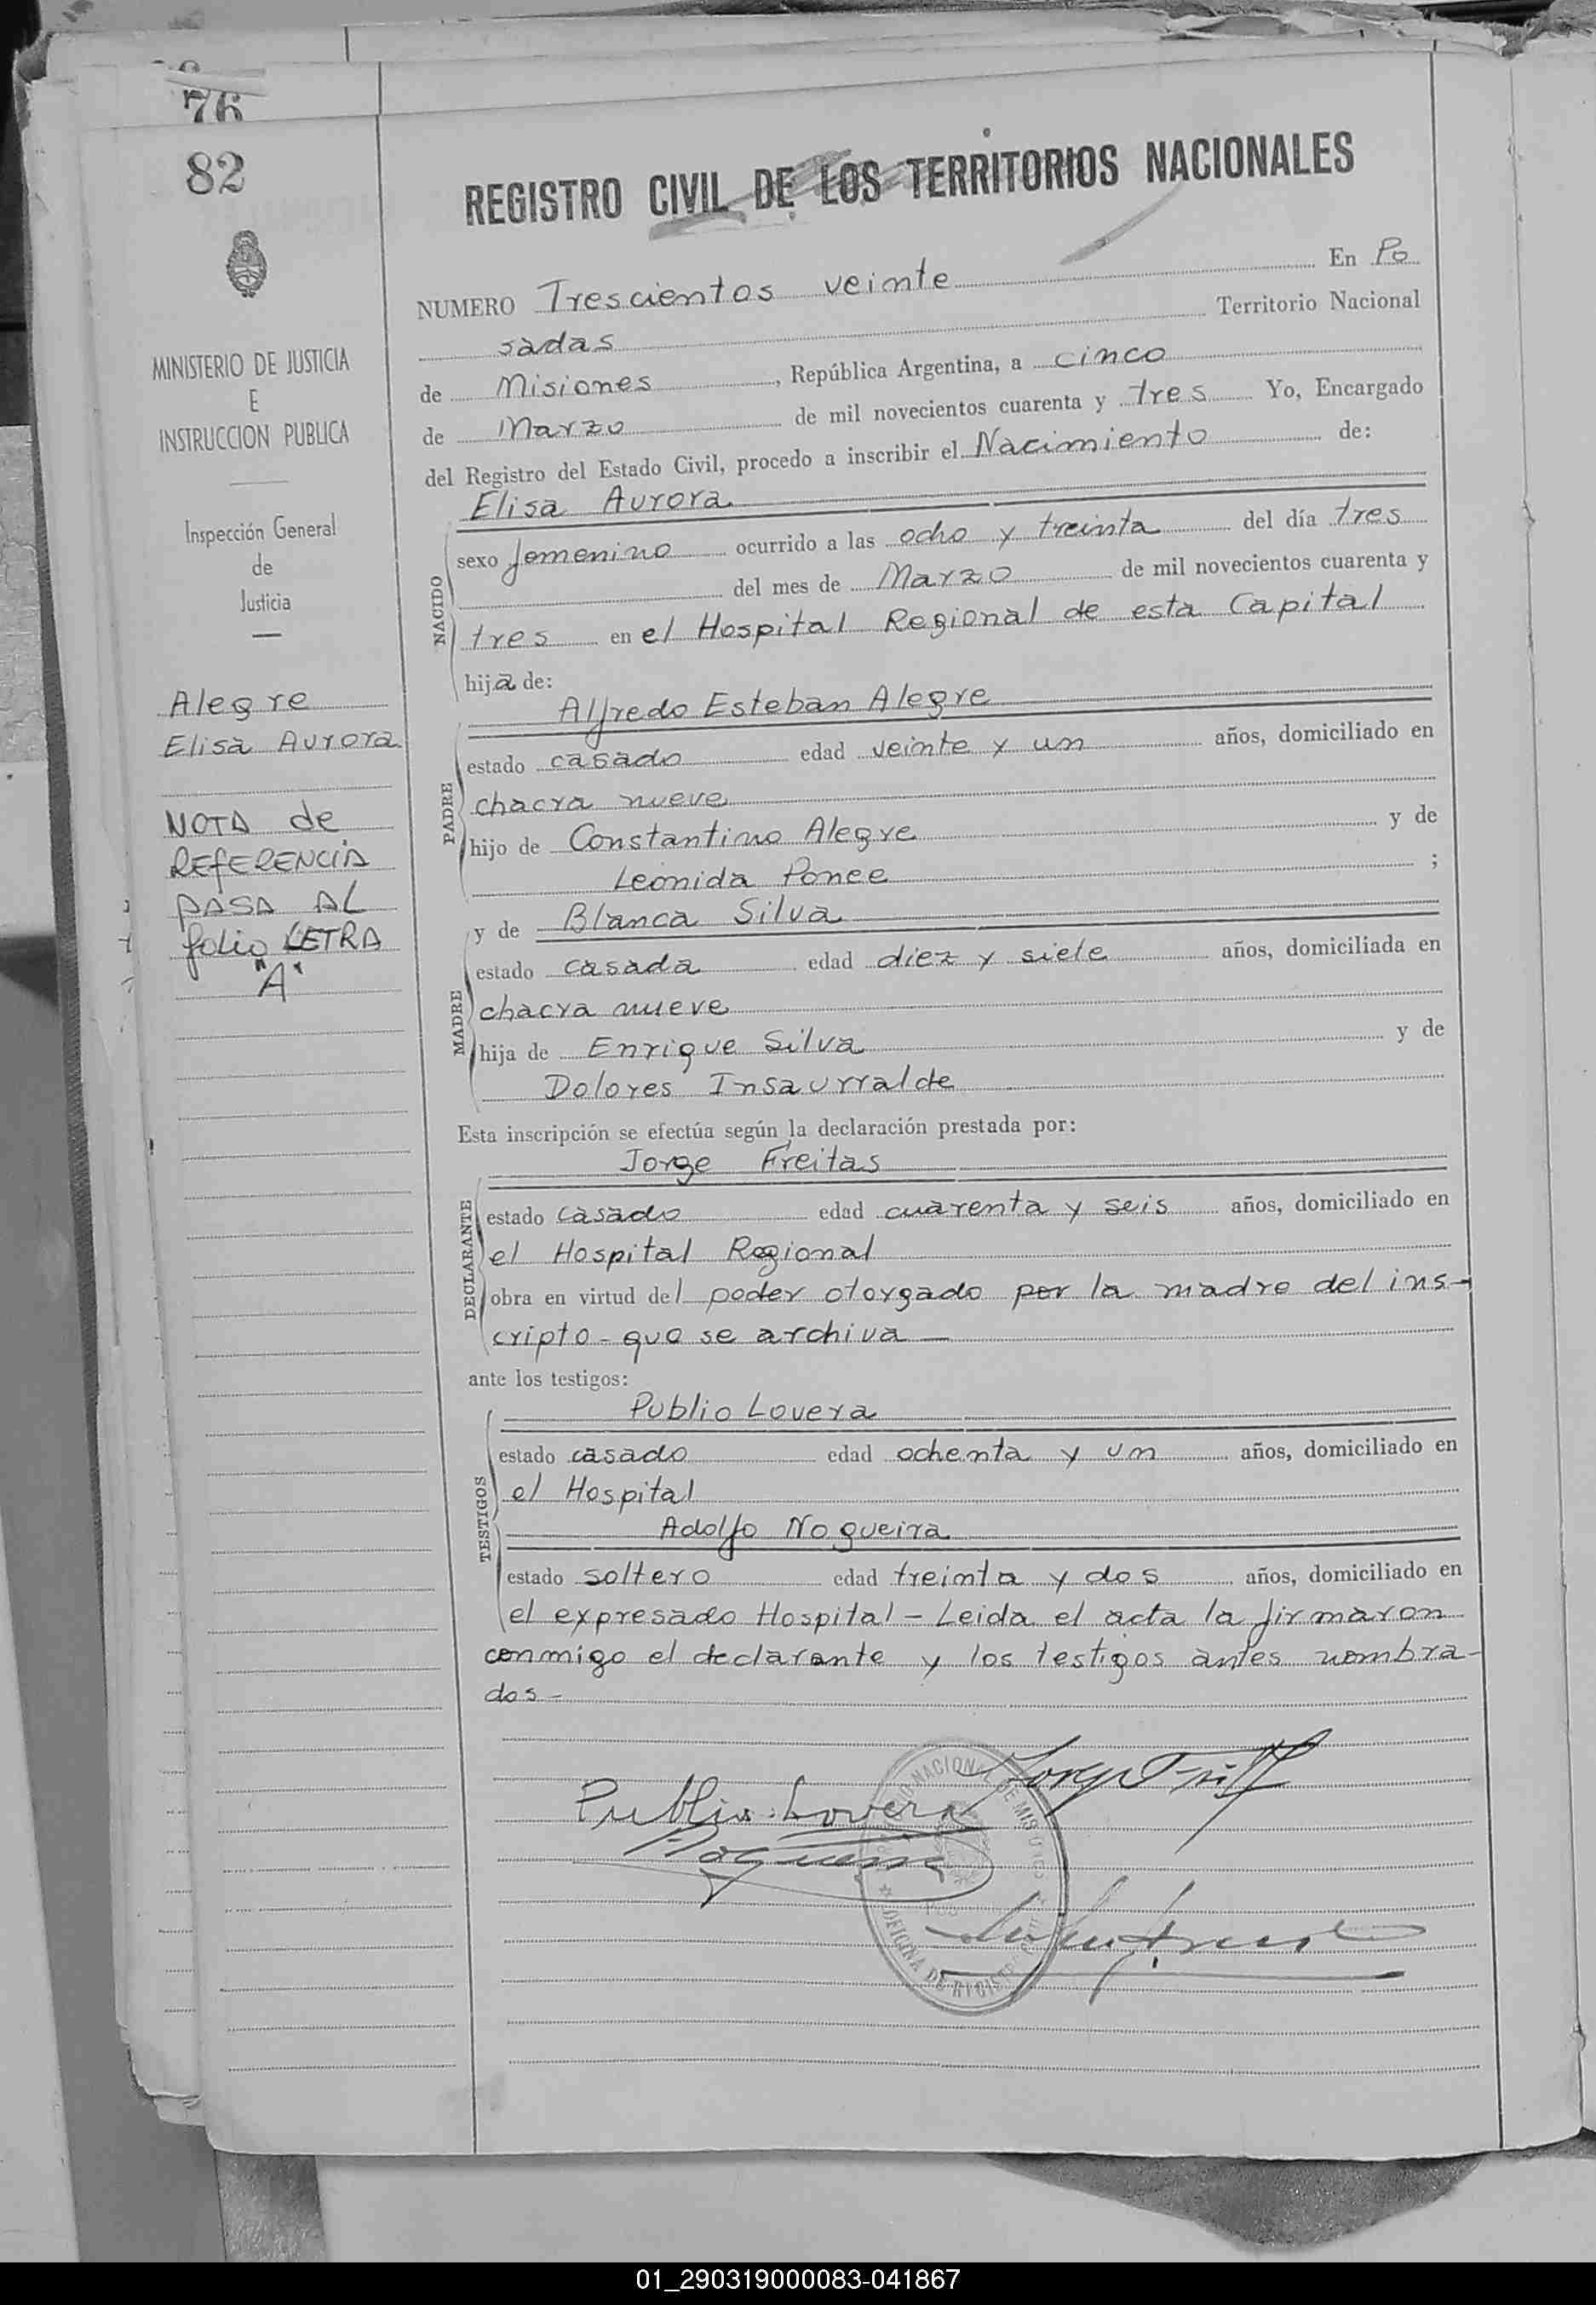 76
82
REGISTRO CIVIL DE LOS TERRITORIOS NACIONALES
MINISTERIO DE JUSTICIA
E
INSTRUCCION PUBLICA
Inspección General
de
Justicia
Alegre
Elisa Aurora
NOTA de
REFERENCIA
PASA AL
folio LETRA
"A"
NUMERO Trescientos veinte En Po
sadas Territorio Nacional
de Misiones, República Argentina, a cinco
de Marzo de mil novecientos cuarenta y tres Yo, Encargado
del Registro del Estado Civil, procedo a inscribir el Nacimiento de:
NACIDO
Elisa Aurora
sexo femenino ocurrido a las ocho y treinta del día tres
del mes de Marzo de mil novecientos cuarenta y
tres en el Hospital Regional de esta Capital
hija de:
PADRE
Alfredo Esteban Alegre
estado casado edad veinte y un años, domiciliado en
chacra nueve
hijo de Constantino Alegre y de
Leonida Ponce ;
MADRE
y de Blanca Silva
estado casada edad diez y siete años, domiciliada en
chacra nueve
hija de Enrique Silva y de
Dolores Insaurralde
Esta inscripción se efectúa según la declaración prestada por:
DECLARANTE
Jorge Freitas
estado casado edad cuarenta y seis años, domiciliado en
el Hospital Regional
obra en virtud del poder otorgado por la madre del ins-
cripto - que se archiva —
ante los testigos:
TESTIGOS
Publio Lovera
estado casado edad ochenta y un años, domiciliado en
el Hospital
Adolfo Nogueira
estado soltero edad treinta y dos años, domiciliado en
el expresado Hospital - Leida el acta la firmaron
conmigo el declarante y los testigos antes nombra-
dos -
Publio Lovera
Nogueira
01_290319000083-041867